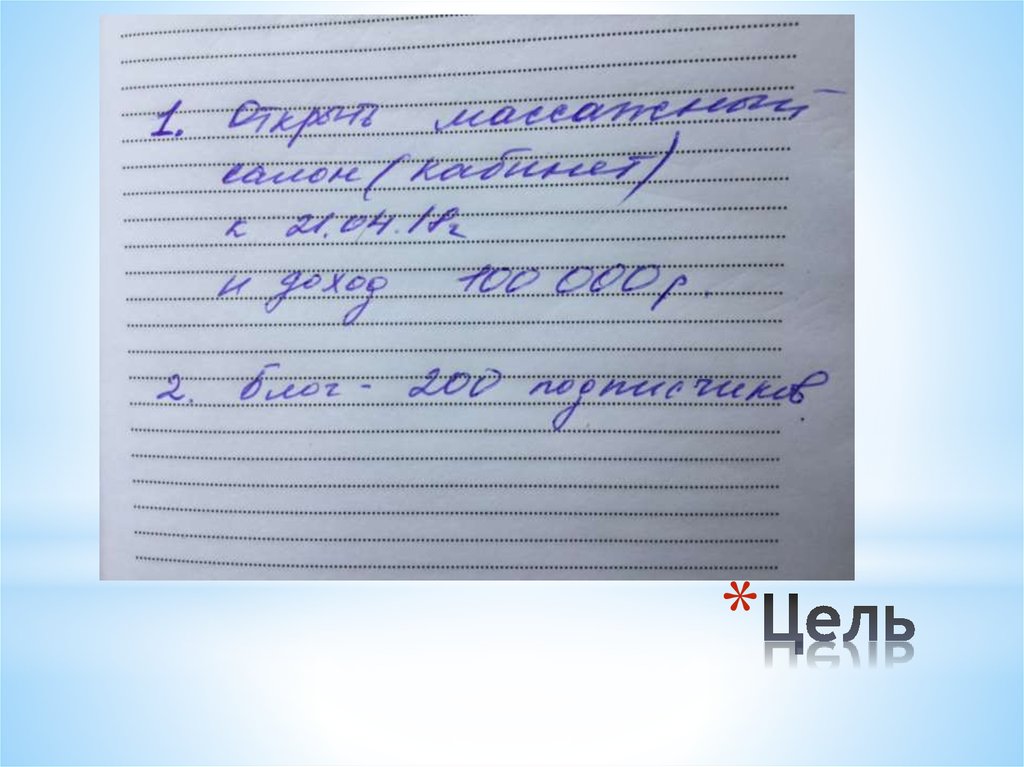 1. Открыть массажный
салон (кабинет)
к 21.04.18г
и доход 100 000р.
2. Блог - 200 подписчиков.
*Цель